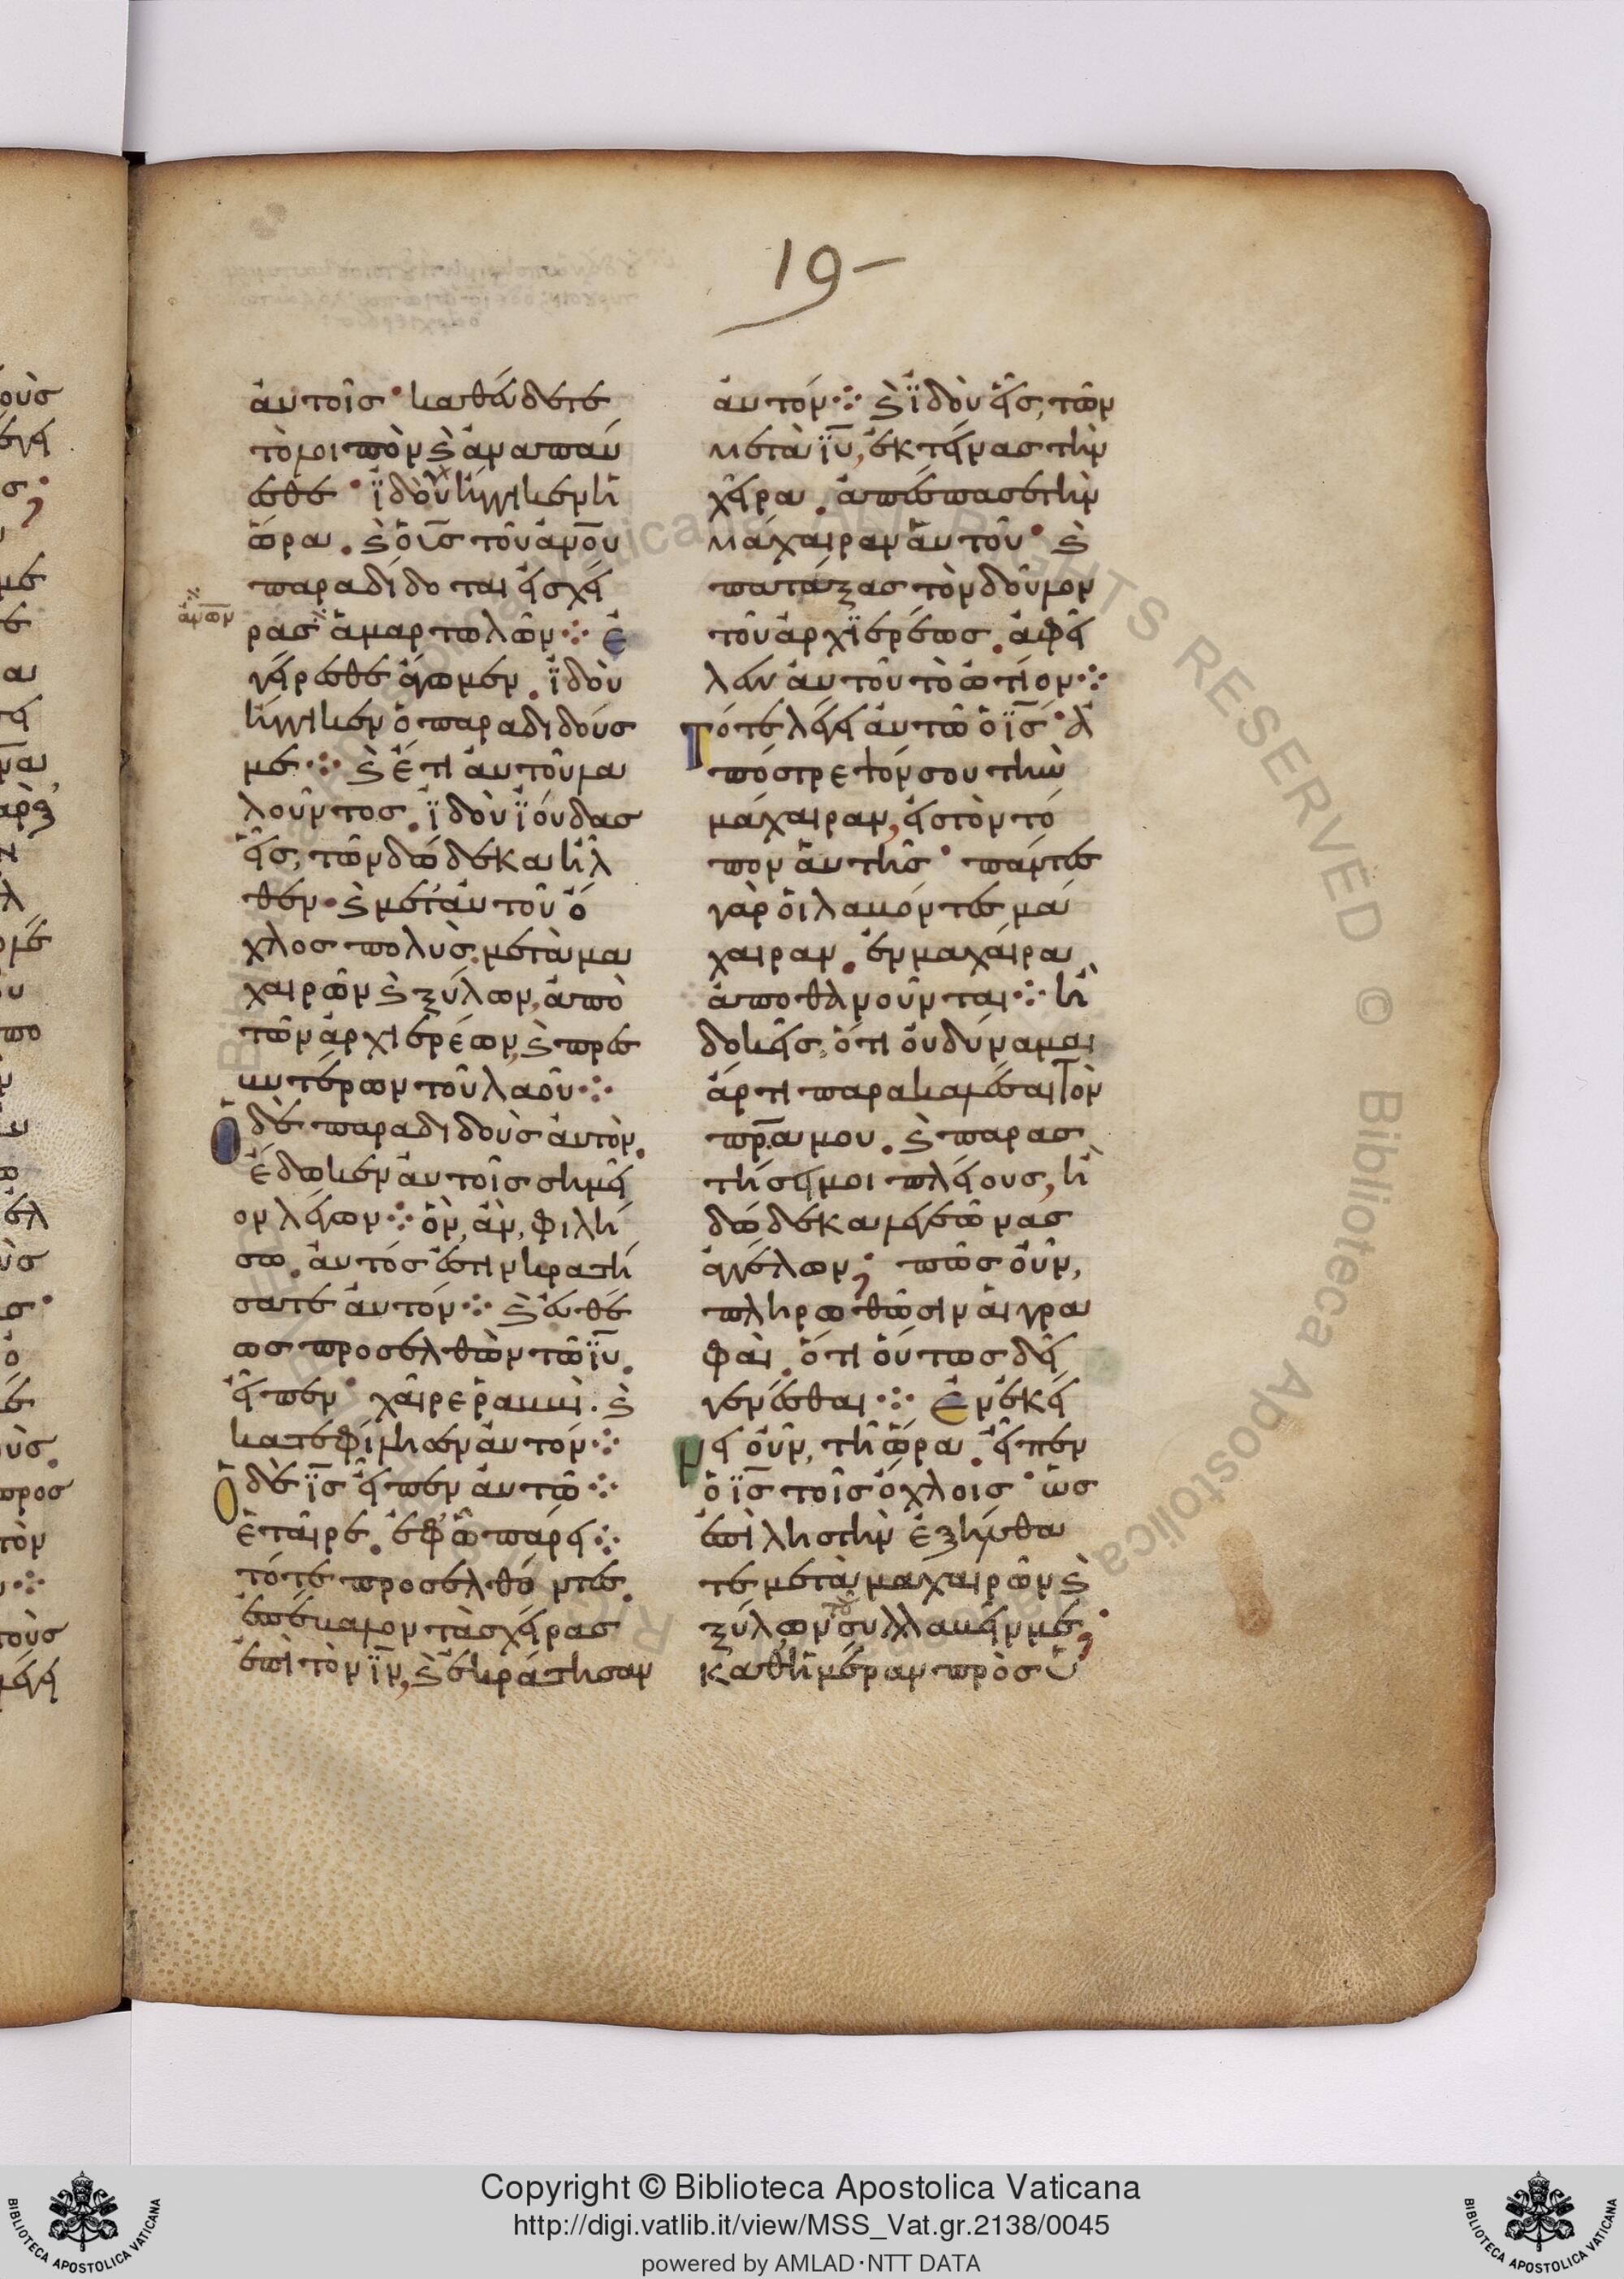 19
ἀυτοῖσ· καθέυδετε
τὸ λοιπὸν ϗ ἀναπαύ
εσθε· ϊδοὺ ἤγγικεν ἡ
ὥρα. ϗ ὁ υ̅ς̅ τοῦ ἀν̅ο̅υ̅
παραδίδοται ἐισ χεῖ
ἀν̅ω̅ν̅
ρασ ἁμαρτωλῶν⁘ ἐ
γείρεσθε ἄγωμεν. ϊδοὺ
ἤγγικεν ὁ παραδιδούσ
με⁘ ϗ ἔτι ἀυτοῦ λα
λοῦντοσ. ϊδοὺ ϊούδασ
εἷσ, τῶν δώδεκα ἦλ
θεν· ϗ μετ' ἀυτοῦ ὄ
χλοσ πολὺσ. μετὰ μα
χαιρῶν ϗ ξύλων, ἀπὸ
τῶν ἀρχιερέων, ϗ πρεσ
βυτέρων τοῦ λαοῦ⁘
Ὁ δὲ παραδιδοὺσ ἀυτὸν.
ἔδωκεν ἀυτοῖσ σημεῖ
ον λέγων⁘ ὃν, ἂν, φιλή
σω. ἀυτόσ ἐστιν κρατή
σατε ἀυτόν⁘ ϗ ἐυθέ
ωσ προσελθὼν τῶ ι̅υ̅.
εἶπεν· χαῖρε ῥαββὶ. ϗ
κατεφίλησεν ἀυτόν⁘
Ὁ δὲ ι̅ς̅ εἶπεν ἀυτῶ⁘
ἑταῖρε. ἐφ' ᾧ πάρει⁘
τότε προσελθόντεσ.
ἐπέβαλον τὰσ χεῖρασ
ἐπὶ τὸν ι̅ν̅, ϗ ἐκράτησαν
ἀυτόν⁘ ϗ ϊδοὺ εἷσ, τῶν
μετὰ ι̅υ̅, ἐκτείνασ τὴν
χεῖρα. ἀπέσπασε τὴν
μάχαιραν ἀυτοῦ· ϗ
πατάξασ τὸν δοῦλον
τοῦ ἀρχϊερέωσ. ἀφεῖ
λεν ἀυτοῦ τὸ ὠτίον⁘
Τότε λέγει ἀυτῶ ὁ ι̅ς̅· ἀ
πόστρεψόν σου τὴν
μάχαιραν, ἐισ τὸν τό
πον ἀυτῆσ· πάντεσ
γὰρ ὁι λαβόντεσ μά
χαιραν. ἐν μαχαίρα
ἀποθανοῦνται⁘ ἢ
δοκεῖσ, ὅτι ὀυ δύναμαι
ἄρτι παρακαλέσαι τὸν
π̅ρ̅α̅ μου. ϗ παρασ
τήσει μοι πλείουσ, ἢ
δώδεκα λεγεῶνασ
ἀγγέλων; πῶσ ὀῦν,
πληρωθῶσιν ἁι γρα
φάι. ὅτι ὅυτωσ δεῖ
γενέσθαι⁘ Ἐν ἐκεί
νῃ ὀῦν, τῆ ὥρα. εἶπεν
ὁ ι̅ς̅ τοῖσ ὄχλοισ· ὡσ
ἐπὶ ληστὴν ἐξήλθα
τε μετὰ μαχαιρῶν ϗ
ξύλων συλλαβεῖν με;
καθ' ἡμέραν πρὸσ ὑ
BIBLIOTECA APOSTOLICA VATICANA
Copyright © Biblioteca Apostolica Vaticana
http://digi.vatlib.it/view/MSS_Vat.gr.2138/0045
powered by AMLAD·NTT DATA
BIBLIOTECA APOSTOLICA VATICANA